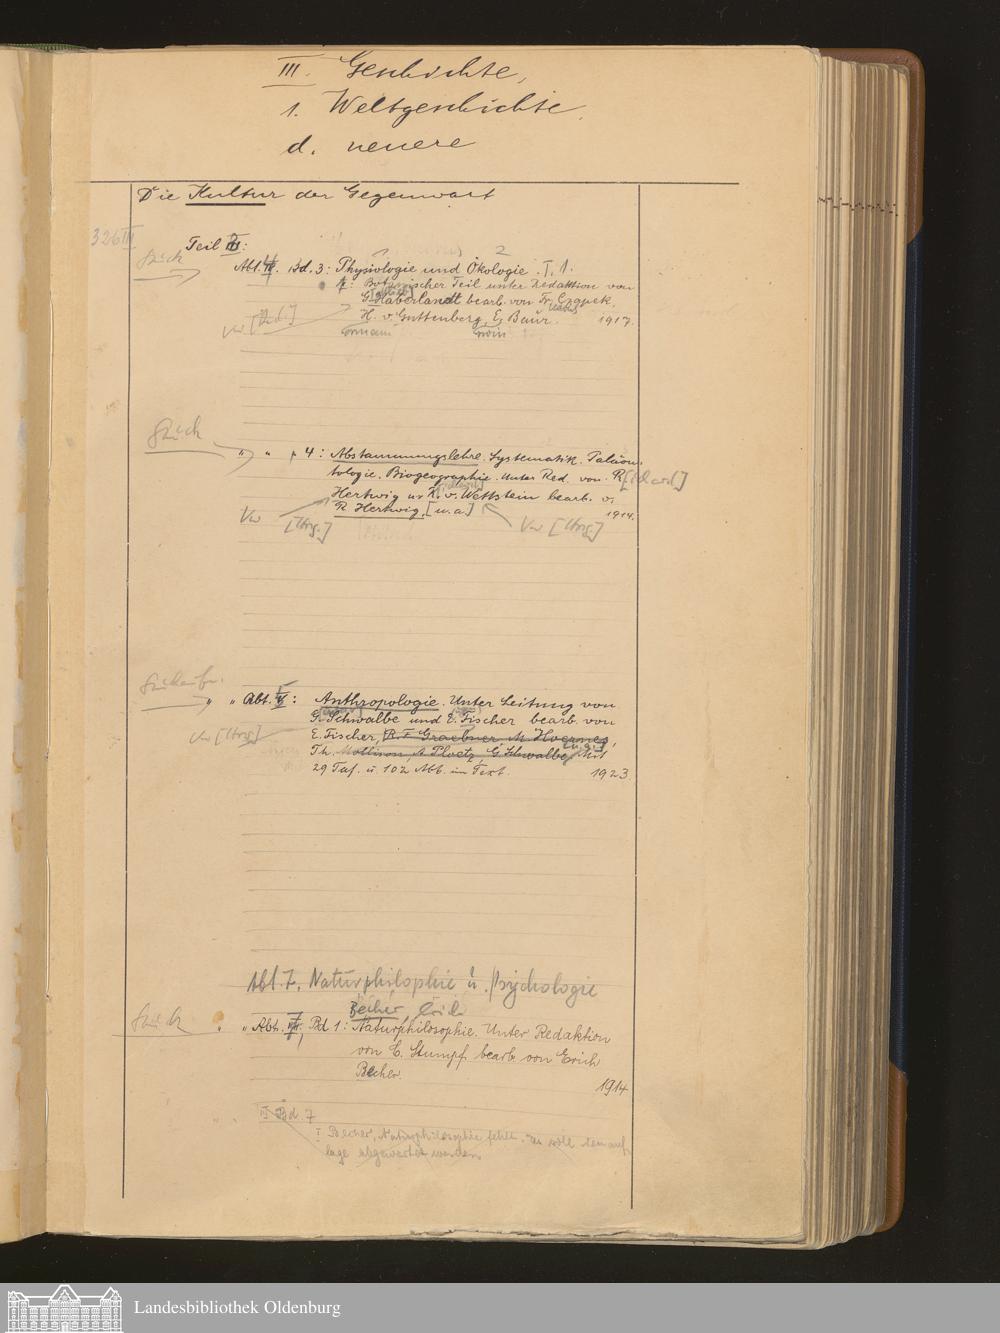 III. Geschichte,
1. Weltgeschichte.
d. neuere
Die Kultur der Gegenwart
326 III
Teil III:
Stück
Abt. IV. Bd. 3: Physiologie und Ökologie. I, 1.
1: Botanischer Teil unter Redaktion von
G. Haberlandt bearb. von Fr. Czapek,
H. v. Guttenberg, E. Baur. 1917.
Vw [Red.]
Erwin
Stück
" " " 4: Abstammungslehre. Systematik. Paläon-
tologie. Biogeographie. Unter Red. von R
Hertwig u. R. v. Wettstein bearb. v.
R Hertwig, [u.a.] 1914.
Vw [Hrsg.] Vw [Hrsg.]
" " Abt. V: Anthropologie. Unter Leitung von
G. Schwalbe und E. Fischer bearb. von
E. Fischer, R. F. Graebner M. Hoernes,
Th. Mollison, A Ploetz, G. Schwalbe. Mit
29 Taf. u. 102 Abb. im Text. 1923.
Vw [Hrsg.]
Abt. 7. Naturphilosophie u. Psychologie
Becher, Erich
Stück
" " Abt. VII, Bd 1: Naturphilosophie. Unter Redaktion
von C. Stumpf bearb. von Erich
Becher. 1914
Bd 7
Becher, Naturphilosophie fehlt. soll Neuauf-
lage abgewartet werden
Landesbibliothek Oldenburg